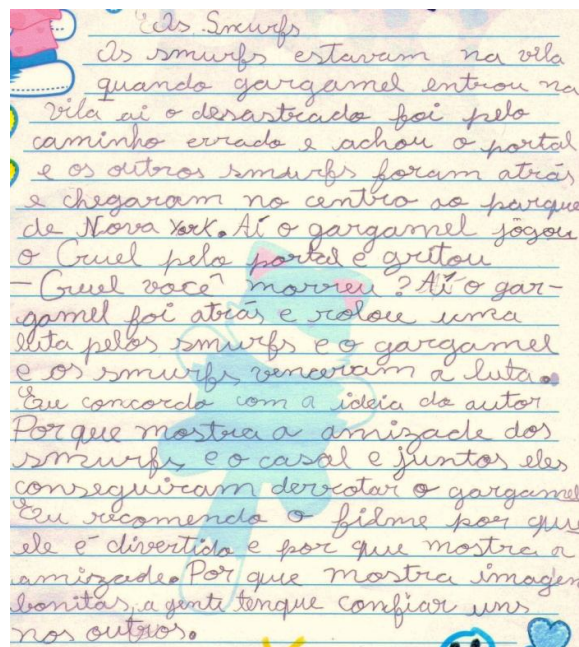 Os Smurfs
Os smurfs estavam na vila
quando gargamel entrou na
vila ai o desastrado foi pelo
caminho errado e achou o portal
e os outros smurfs foram atrás
e chegaram no centro ao parque
de Nova York. Aí o gargamel jogou
o Cruel pelo portal e gritou
– Cruel você morreu? Aí o gar-
gamel foi atrás e rolou uma
luta pelos smurfs e o gargamel
e os smurfs venceram a luta.
Eu concordo com a ideia do autor
Por que mostra a amizade dos
smurfs e o casal e juntos eles
conseguiram derrotar o gargamel
Eu recomendo o filme por que
ele é divertido e por que mostra a
amizade. Por que mostra imagen
bonitas, a gente tenque confiar uns
nos outros.